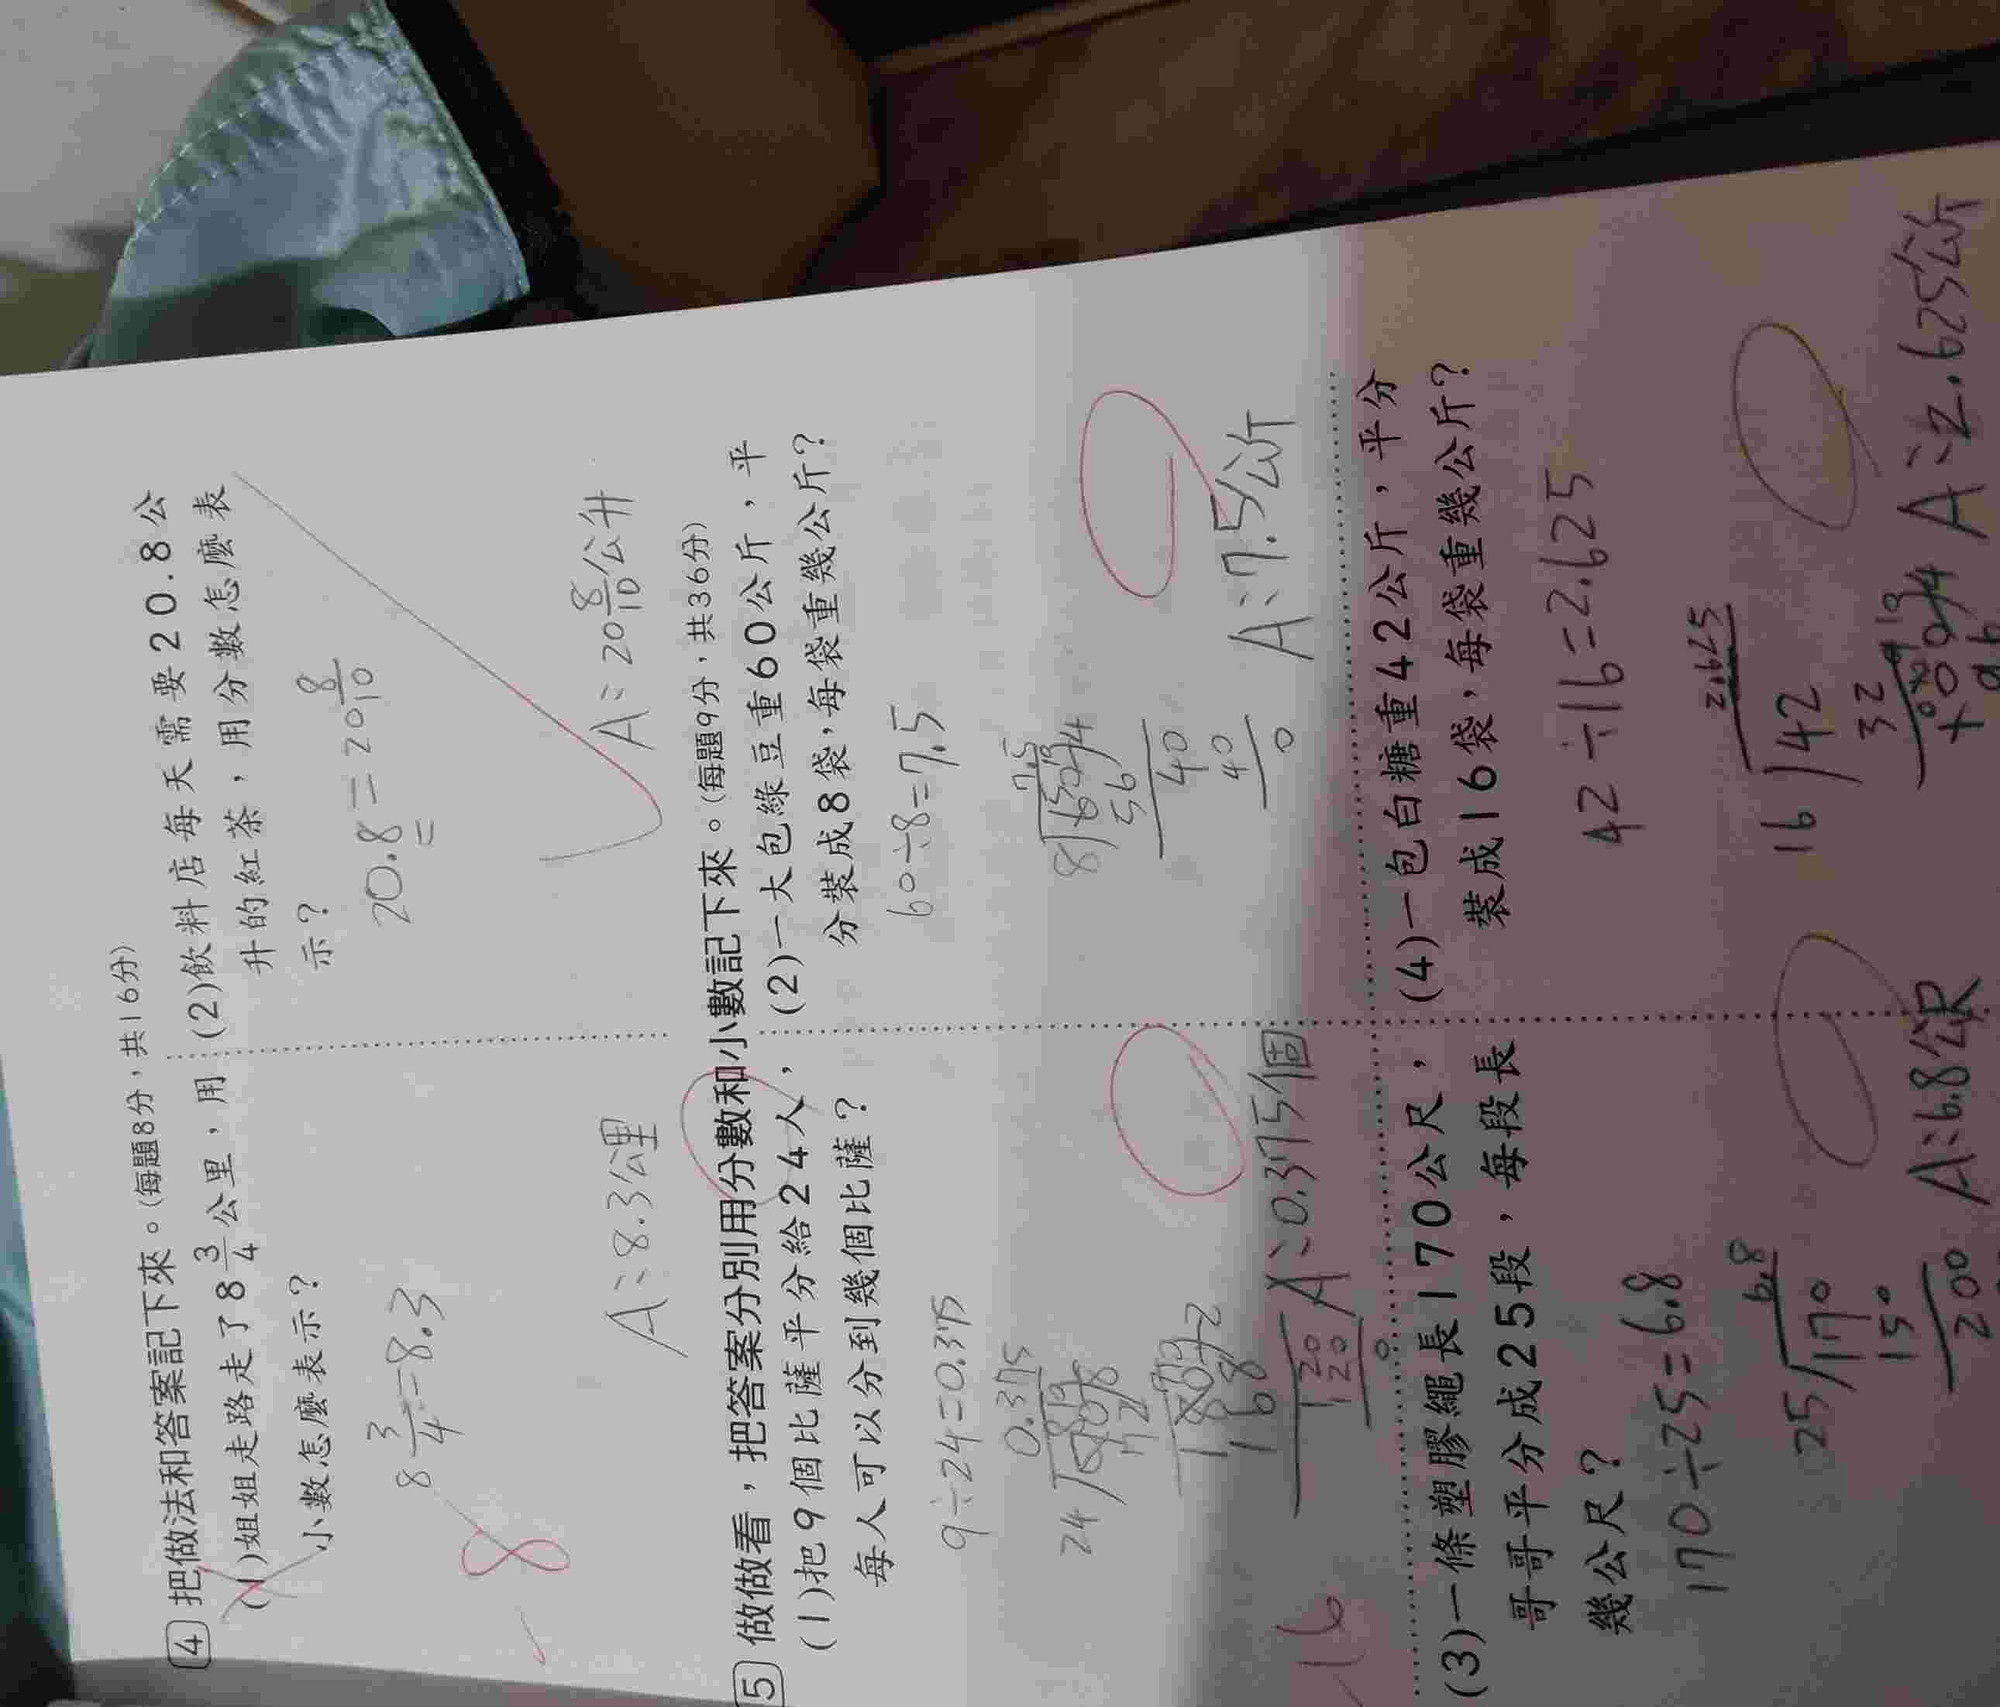 4 把做法和答案記下來。(每題8分，共16分)
(1)姐姐走路走了8 3/4公里，用
小數怎麼表示？
8 3/4=8.3
A：8.3公里
-8
(2)飲料店每天需要20.8公
升的紅茶，用分數怎麼表
示？
20.8=20 8/10
=
A：20 8/10公升
5 做做看，把答案分別用分數和小數記下來。(每題9分，共36分)
(1)把9個比薩平分給24人，
每人可以分到幾個比薩？
9÷24=0.375
0.375
24
72
168
120
120
0
A：0.375個
(2)一大包綠豆重60公斤，平
分裝成8袋，每袋重幾公斤？
60÷8=7.5
7.5
8
56
40
40
0
A：7.5公斤
-16
(3)一條塑膠繩長170公尺，
哥哥平分成25段，每段長
幾公尺？
170÷25=6.8
6.8
25 170
150
200
A：6.8公尺
(4)一包白糖重42公斤，平分
裝成16袋，每袋重幾公斤？
42÷16=2.625
2.625
16 42
32
96
A：2.625公斤